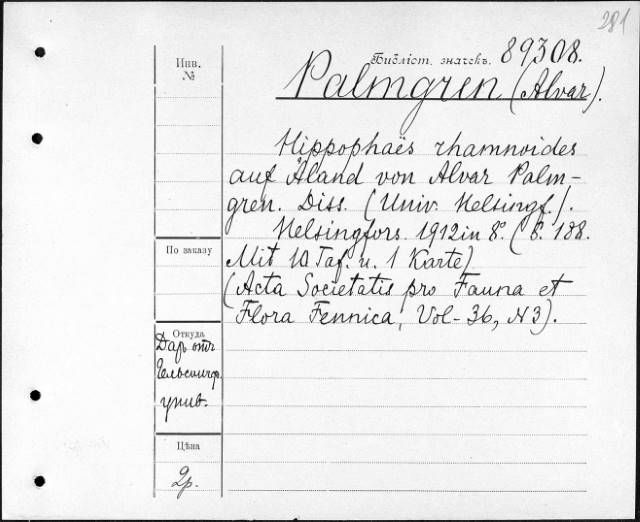 281
Инв.
№
Библіот. значекъ. 89308.
Palmgren (Alvar).
Hippophaës rhamnoides
auf Åland von Alvar Palm-
gren. Diss. (Univ. Helsingf.).
Helsingfors. 1912 in 8°. (S. 188.
Mit 10 Taf. u. 1 Karte)
(Acta Societatis pro Fauna et
Flora Fennica, Vol-36, N3).
По заказу
Откуда
Даръ отъ
Гельсингф.
унив.
Цѣна
2р.